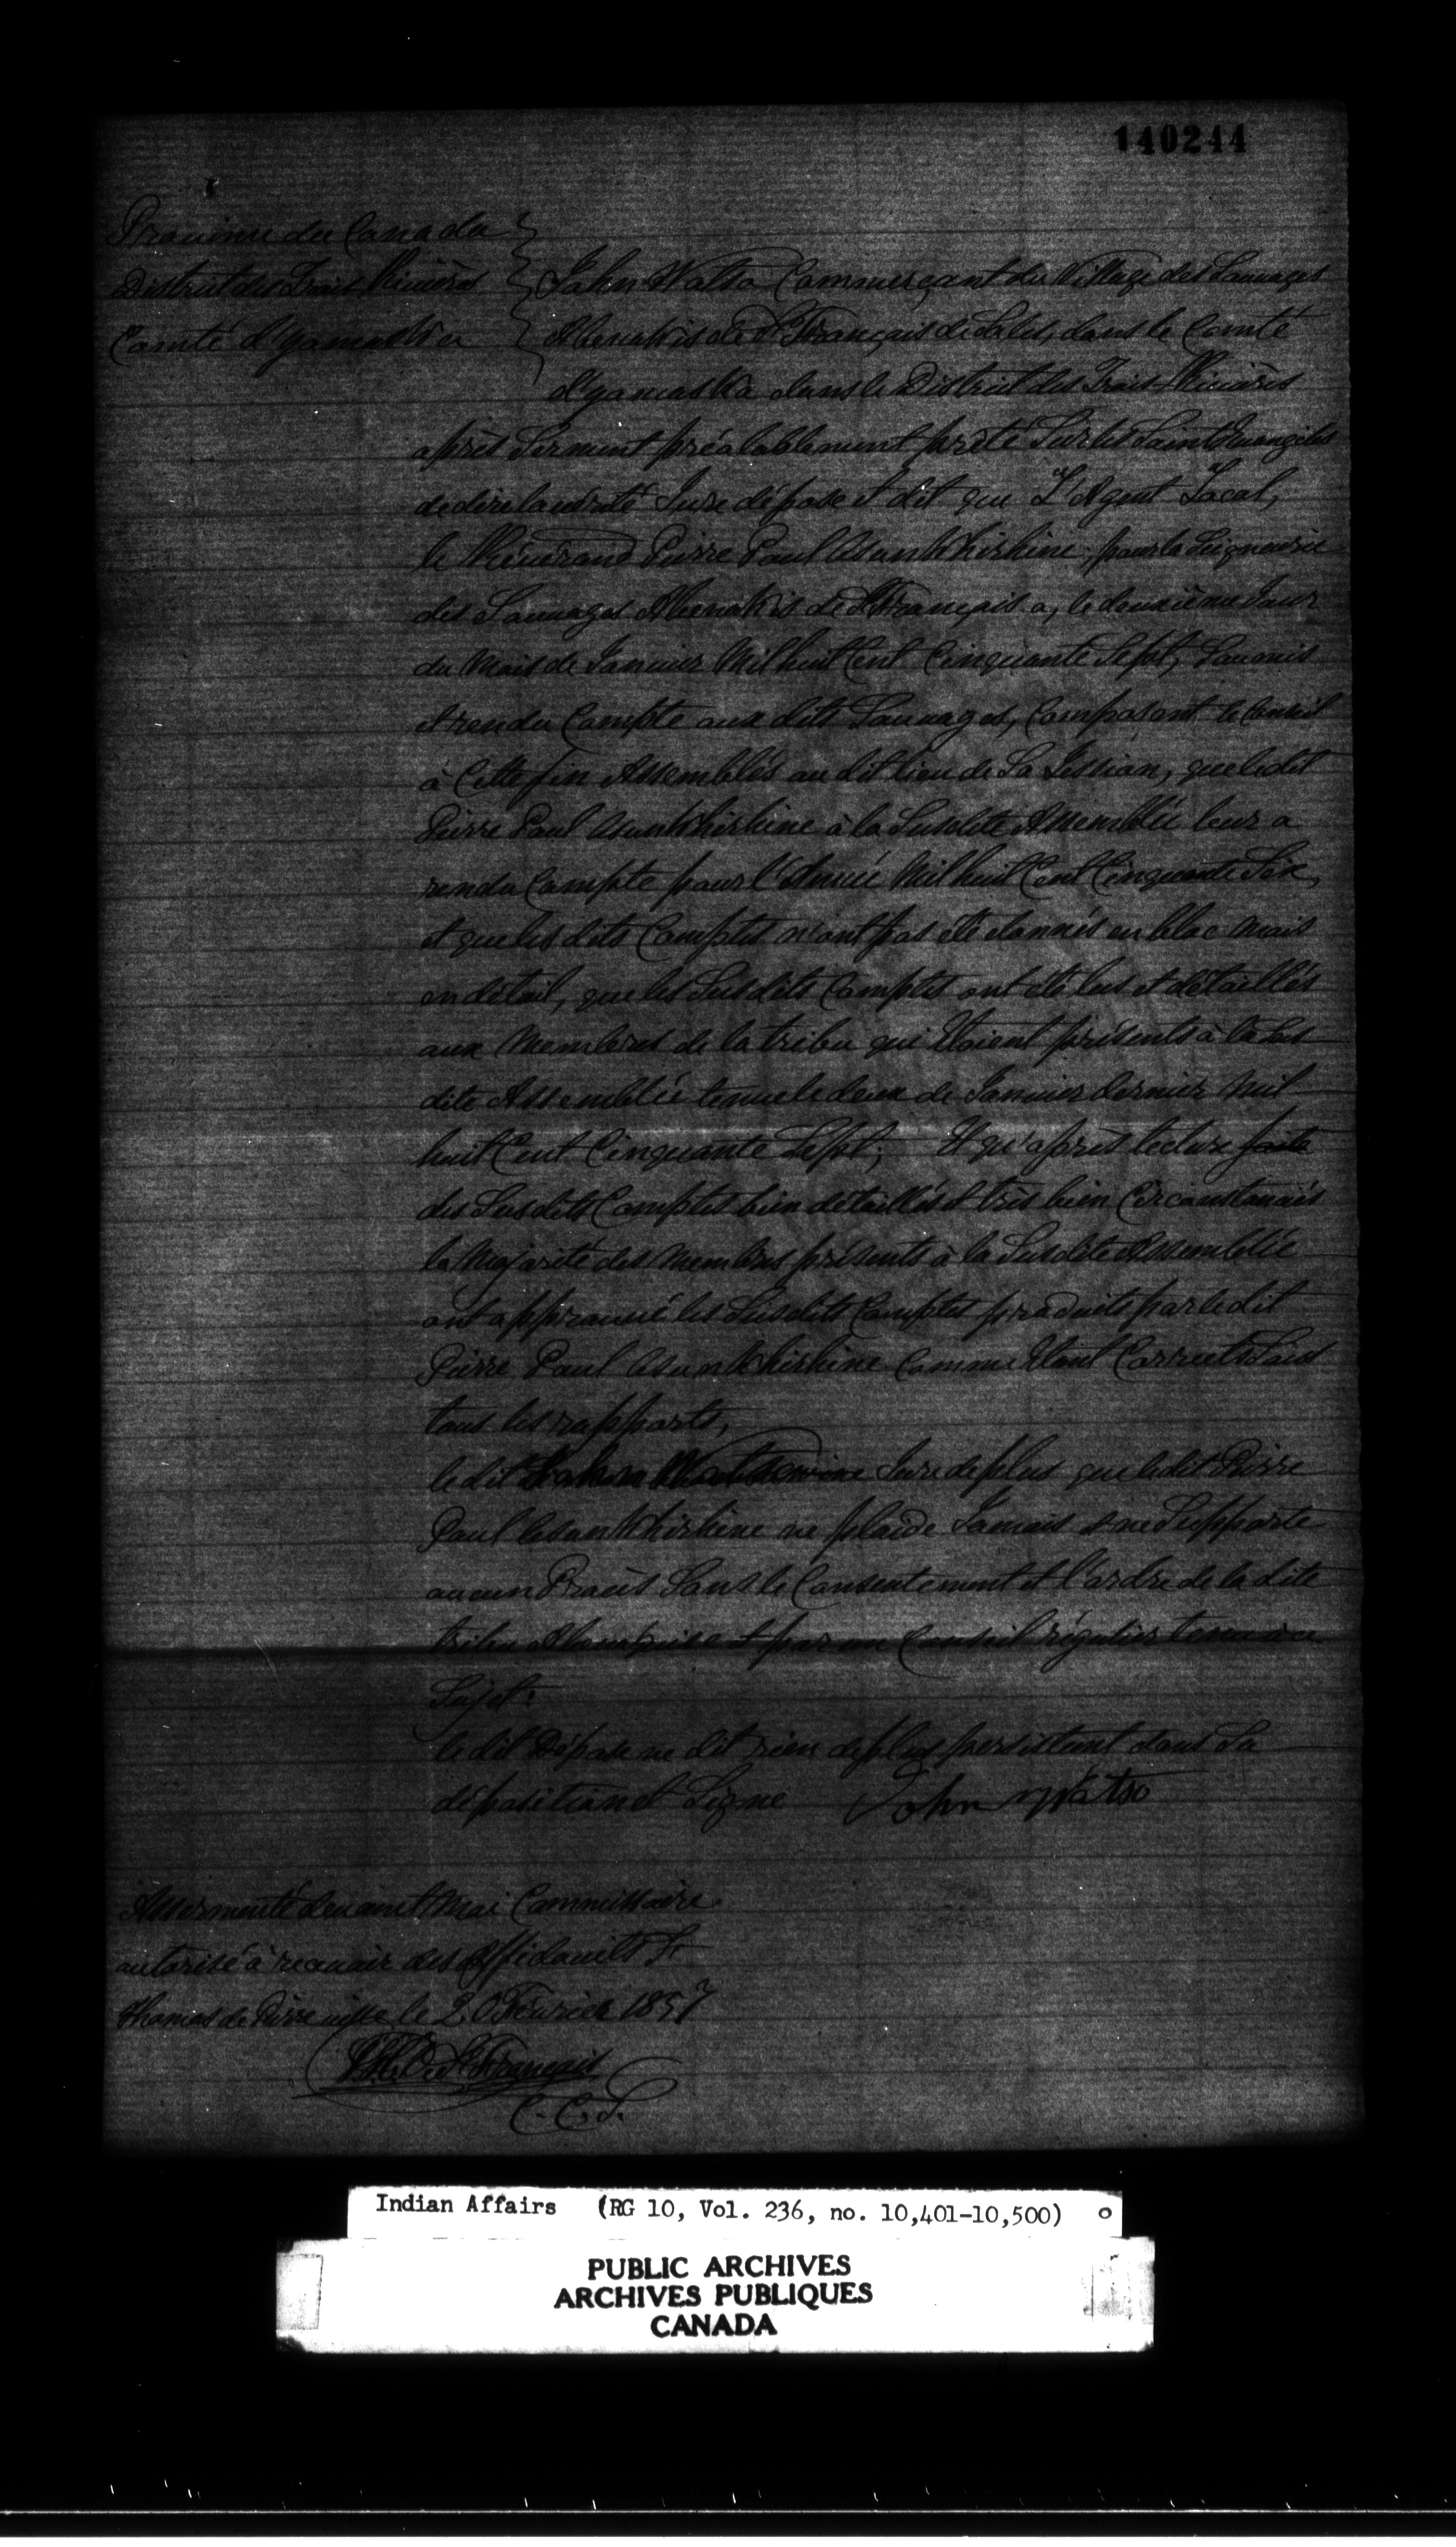 140244
Province du Canada
District des Trois Rivières
Comté d'yamaska
John Watso Commerçant du Village des Sauvages
Abenakis de St François de Sales, dans le Comté
d'yamaska dans le District des Trois-Rivières
après Serment préalablement prêté Sur les Saints Evangiles
de dire la vérité Jure dépose et dit que L'Agent Local,
le Révérand Pierre Paul Osunkhirhine, pour la Seigneurie
des Sauvages Abenakis de St François a, le deuxième Jour
du Mois de Janvier Mil huit Cent Cinquante Sept, Soumis
et rendu Compte aux dits Sauvages, Composant le Conseil
à Cette fin Assemblés au dit lieu de Sa Session, que le dit
Pierre Paul Osunkhirhine à la Susdite Assemblée leur a
rendu Compte pour l'Année Mil huit Cent Cinquante Six,
et que les dits Comptes n'ont pas été donnés en bloc mais
en détail, que les Susdits Comptes ont été lus et détaillés
aux Membres de la tribu qui Etoient présents à la Sus
dite Assemblée tenue le deux de Janvier dernier Mil
huit Cent Cinquante Sept; Et qu'après lecture faite
des Susdits Comptes bien détaillés et très bien Circonstanciés
la Majorité des Membres présents à la Susdite Assemblée
ont approuvé les Susdits Comptes produits par le dit
Pierre Paul Osunkhirhine Comme Etant Corrects Sous
tous les rapports,
le dit Jure de plus que le dit Pierre
Paul Osunkhirhine ne plaide Jamais et ne Supporte
aucun Procès Sans le Consentement et l'ordre de la dite
tribu et par un Conseil régulier tenu à ce
Sujet.
le dit Dépose ne dit rien de plus persistant dans Sa
déposition et Signe John Watso
Assermenté devant Moi Commissaire
autorisé à recevoir des Affidavits St
Thomas de Pierreville le 20 Fevrier 1857
C. C. S.
Indian Affairs (RG 10, Vol. 236, no. 10,401-10,500) o
PUBLIC ARCHIVES
ARCHIVES PUBLIQUES
CANADA